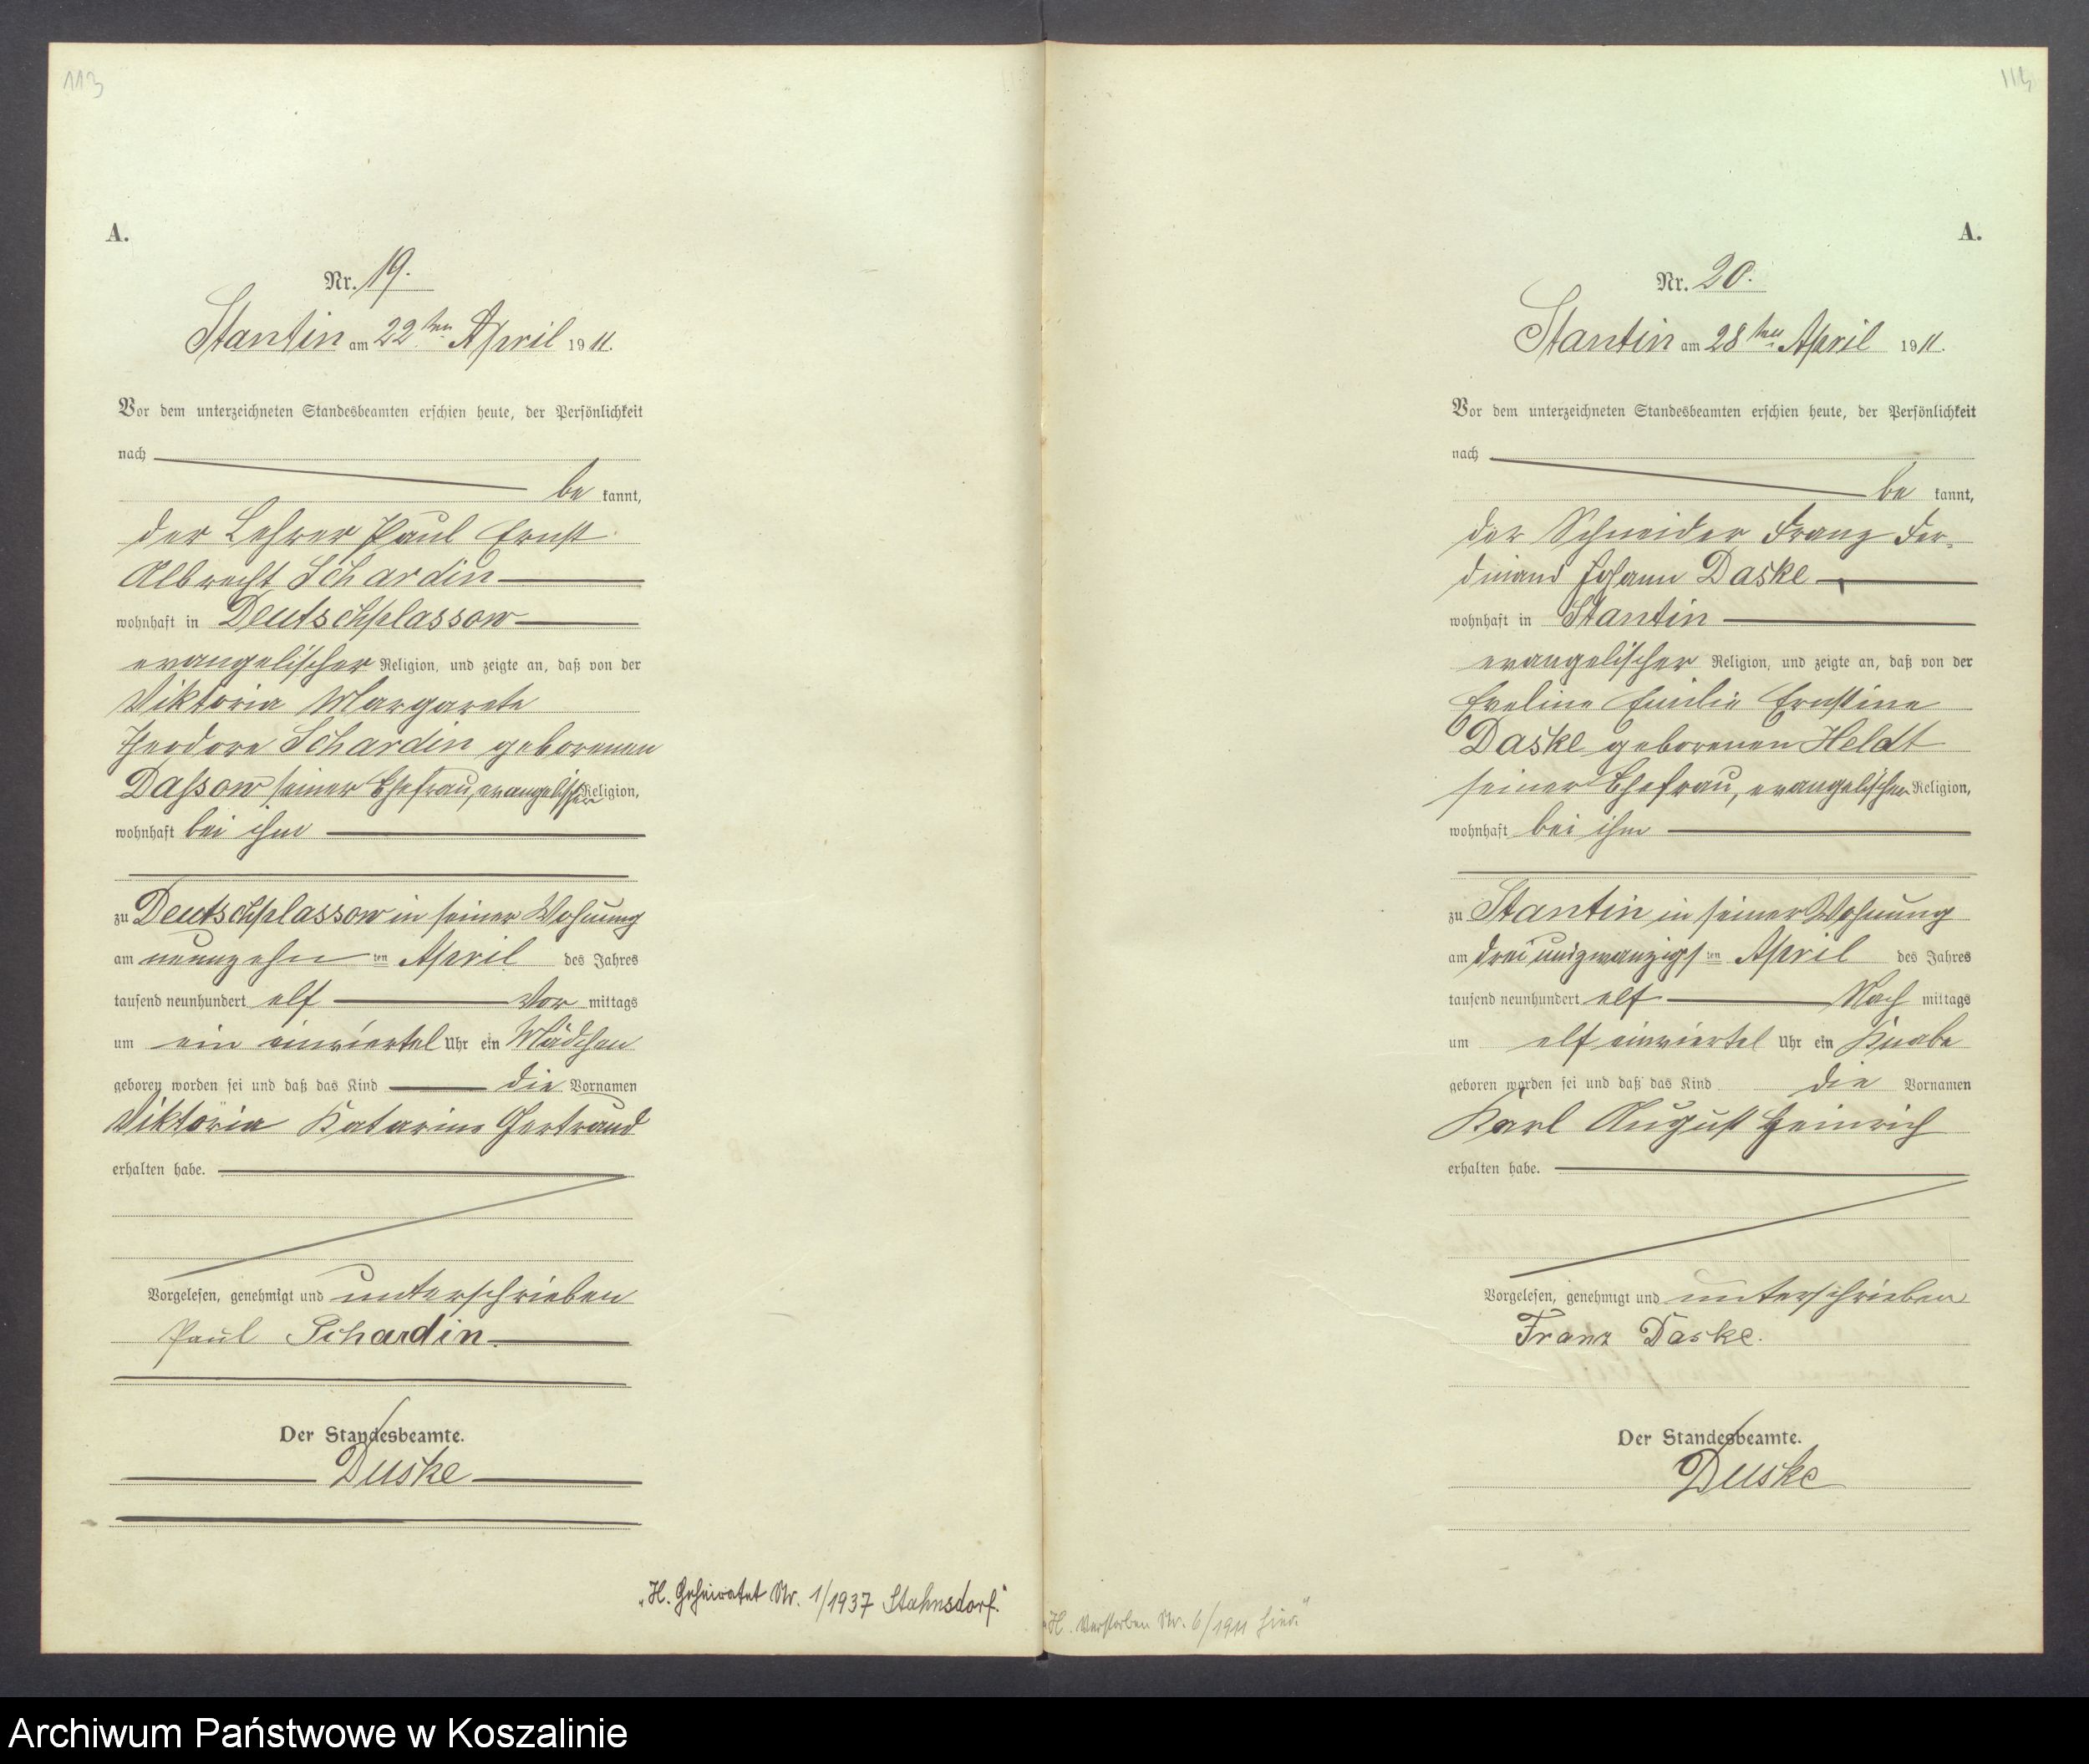 113
A.
Nr. 19.
Stantin am 22ten April 1911.
Vor dem unterzeichneten Standesbeamten erschien heute, der Persönlichkeit
nach
be kannt,
der Lehrer Paul Ernst
Albrecht Schardin
wohnhaft in Deutschplassow
evangelischer Religion, und zeigte an, daß von der
Viktoria Margarete
Theodora Schardin geborenen
Dassow seiner Ehefrau, evangelischer Religion,
wohnhaft bei ihm
zu Deutschplassow in seiner Wohnung
am neunzehn ten April des Jahres
tausend neunhundert elf Vor mittags
um ein einviertel Uhr ein Mädchen
geboren worden sei und daß das Kind die Vornamen
Viktoria Katarina Gertraud
erhalten habe.
Vorgelesen, genehmigt und unterschrieben
Paul Schardin.
Der Standesbeamte.
Duske
"H. Geheiratet Nr. 1/1937 Stahnsdorf."
A.
Nr. 20.
Stantin am 28ten April 1911.
Vor dem unterzeichneten Standesbeamten erschien heute, der Persönlichkeit
nach
be kannt,
der Schneider Franz Fer-
dinand Johann Daske
wohnhaft in Stantin
evangelischer Religion, und zeigte an, daß von der
Eveline Emilie Ernstine
Daske geborenen Heldt
seiner Ehefrau, evangelischer Religion,
wohnhaft bei ihm
zu Stantin in seiner Wohnung
am dreiundzwanzigs ten April des Jahres
tausend neunhundert elf Nach mittags
um elf einviertel Uhr ein Knabe
geboren worden sei und daß das Kind die Vornamen
Karl August Heinrich
erhalten habe.
Vorgelesen, genehmigt und unterschrieben
Franz Daske.
Der Standesbeamte.
Duske
"H. Verstorben Nr. 6/1911 hier."
Archiwum Państwowe w Koszalinie